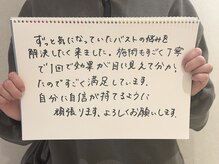 ずっと気になっていたバストの悩みを
解決したく来ました。施術もすごく丁寧
で1回で効果が目に見えて分かっ
たのですごく満足しています。
自分に自信が持てるように
頑張ります。よろしくお願いします。